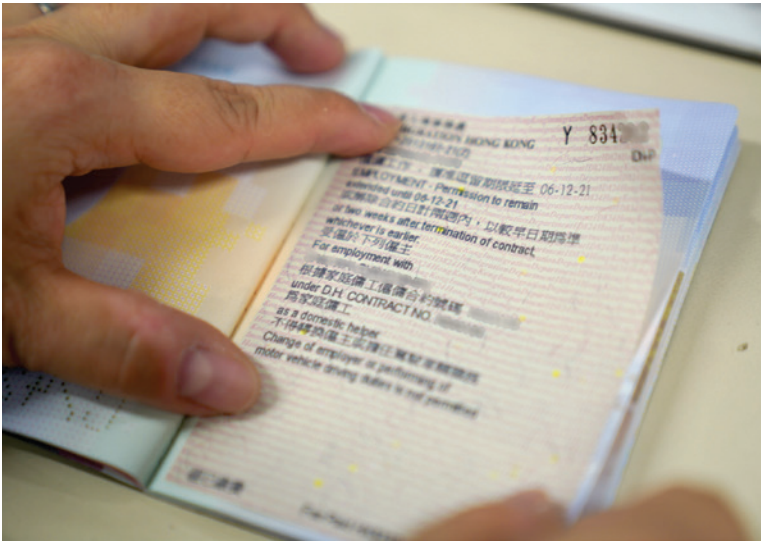 IMMIGRATION HONG KONG
Y 834
DH
獲准工作，獲准逗留期限延至 06-12-21
EMPLOYMENT - Permission to remain
extended until 06-12-21
或解除合約日計兩週內，以較早日期為準
or two weeks after termination of contract,
whichever is earlier.
受僱於下列僱主
For employment with
根據家庭傭工僱傭合約號碼
under D.H. CONTRACT NO.
為家庭傭工
as a domestic helper
不得轉換僱主或擔任駕駛車輛職務
Change of employer or performing of
motor vehicle driving duties is not permitted